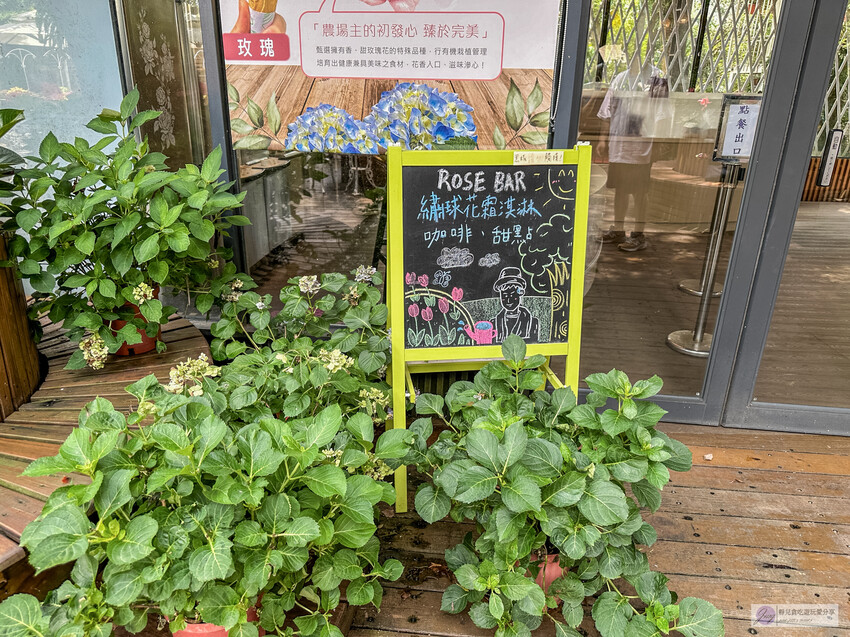 「農場主的初發心 臻於完美」
玫瑰
甄選擁有香、甜玫瑰花的特殊品種，行有機栽植管理
培育出健康兼具美味之食材，花香人口、滋味滲心！
點餐出口
ROSE BAR
繡球花霜淇淋
咖啡、甜點